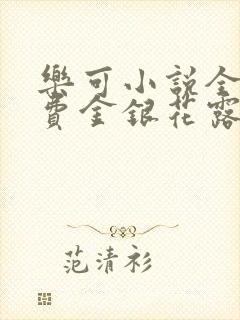 樂可小說全
費金銀花露
范清衫